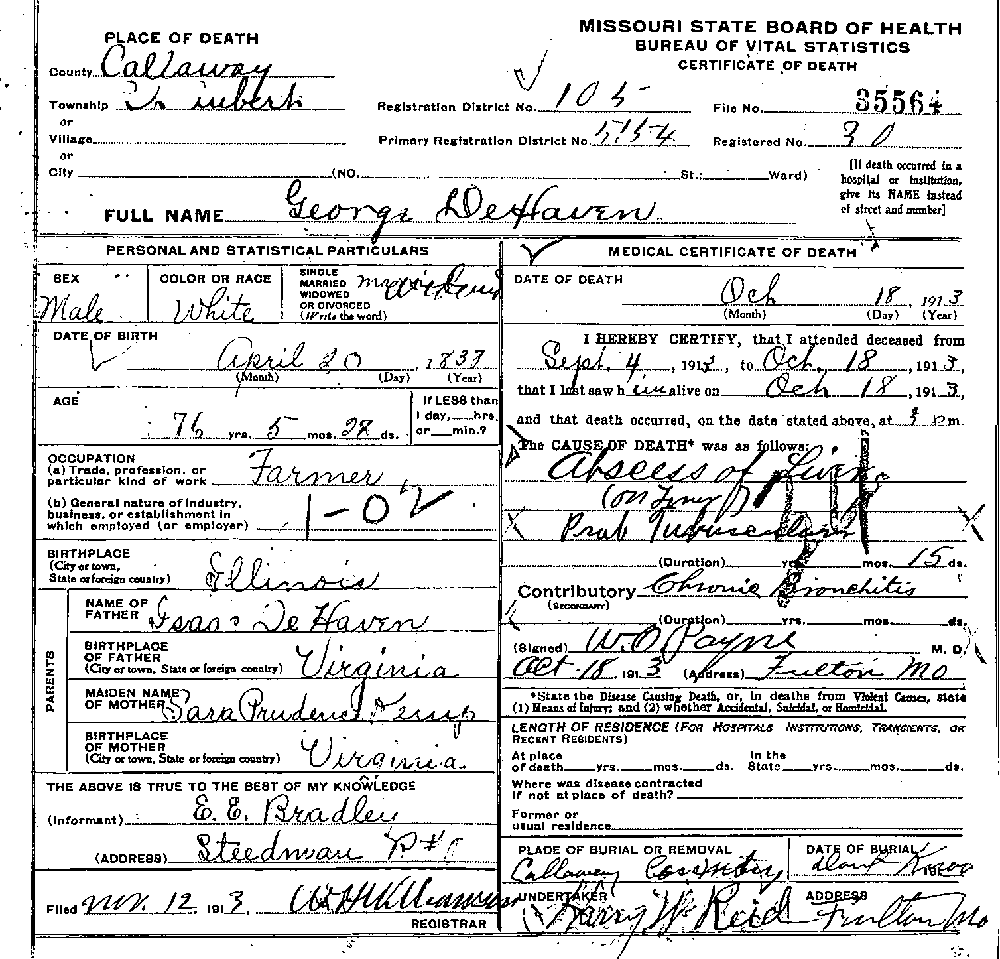 MISSOURI STATE BOARD OF HEALTH
BUREAU OF VITAL STATISTICS
CERTIFICATE OF DEATH
PLACE OF DEATH
County Callaway
Township
or
Village
or
City (NO. St.; Ward)
Registration District No. 105 File No. 35564
Primary Registration District No. 5154 Registered No. 30
[If death occurred in a
hospital or institution,
give its NAME instead
of street and number]
FULL NAME George DeHaven
PERSONAL AND STATISTICAL PARTICULARS
SEX
Male
COLOR OR RACE
White
SINGLE
MARRIED
WIDOWED
OR DIVORCED
(Write the word)
DATE OF BIRTH
April 20, 1833
(Month) (Day) (Year)
AGE
76 yrs. 5 mos. 28 ds.
If LESS than
1 day, hrs.
or min.?
OCCUPATION
(a) Trade, profession, or
particular kind of work Farmer
(b) General nature of industry,
business, or establishment in
which employed (or employer)
1-02
BIRTHPLACE
(City or town,
State or foreign country) Illinois
PARENTS
NAME OF
FATHER Isaac DeHaven
BIRTHPLACE
OF FATHER
(City or town, State or foreign country) Virginia
MAIDEN NAME
OF MOTHER Sara Prudence Kemp
BIRTHPLACE
OF MOTHER
(City or town, State or foreign country) Virginia
THE ABOVE IS TRUE TO THE BEST OF MY KNOWLEDGE
(Informant) E. E. Bradley
(ADDRESS) Steedman R#1
Filed Nov. 12 1913. W H Williamson
REGISTRAR
MEDICAL CERTIFICATE OF DEATH
DATE OF DEATH
Oct 18, 1913
(Month) (Day) (Year)
I HEREBY CERTIFY, that I attended deceased from
Sept. 4, 1913, to Oct. 18, 1913,
that I last saw him alive on Oct 18, 1913,
and that death occurred, on the date stated above, at m.
The CAUSE OF DEATH* was as follows:
Abscess of
Prob Tuberculosis
(Duration) yrs. mos. 15 ds.
Contributory Chronic Bronchitis
(SECONDARY)
(Duration) yrs. mos. ds.
(Signed) W.O. Payne M. D.
Oct 18 1913 (Address) Fulton Mo
*State the Disease Causing Death, or, in deaths from Violent Causes, state
(1) Means of Injury; and (2) whether Accidental, Suicidal, or Homicidal.
LENGTH OF RESIDENCE (FOR HOSPITALS INSTITUTIONS, TRANSIENTS, OR
RECENT RESIDENTS)
At place In the
of death yrs. mos. ds. State yrs. mos. ds.
Where was disease contracted
if not at place of death?
Former or
usual residence
PLACE OF BURIAL OR REMOVAL
Callaway
DATE OF BURIAL
Dont Know
UNDERTAKER
Harry W Reid
ADDRESS
Fulton Mo